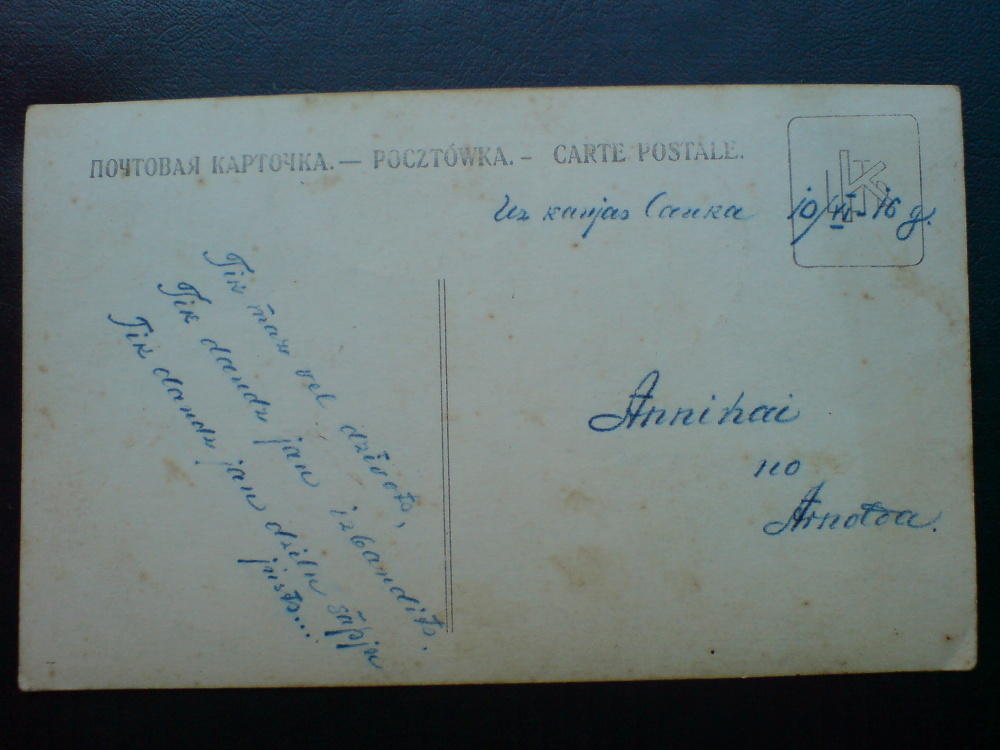 ПОЧТОВАЯ КАРТОЧКА. — POCZTÓWKA. - CARTE POSTALE.
Uz kaujas Lauka 10/VI-16 g.
Tik maz vel dzīvots,
Tik daudz jau izbaudits,
Tik daudz jau dzilu sāpju
justs...
Annihai
no
Arnolda.